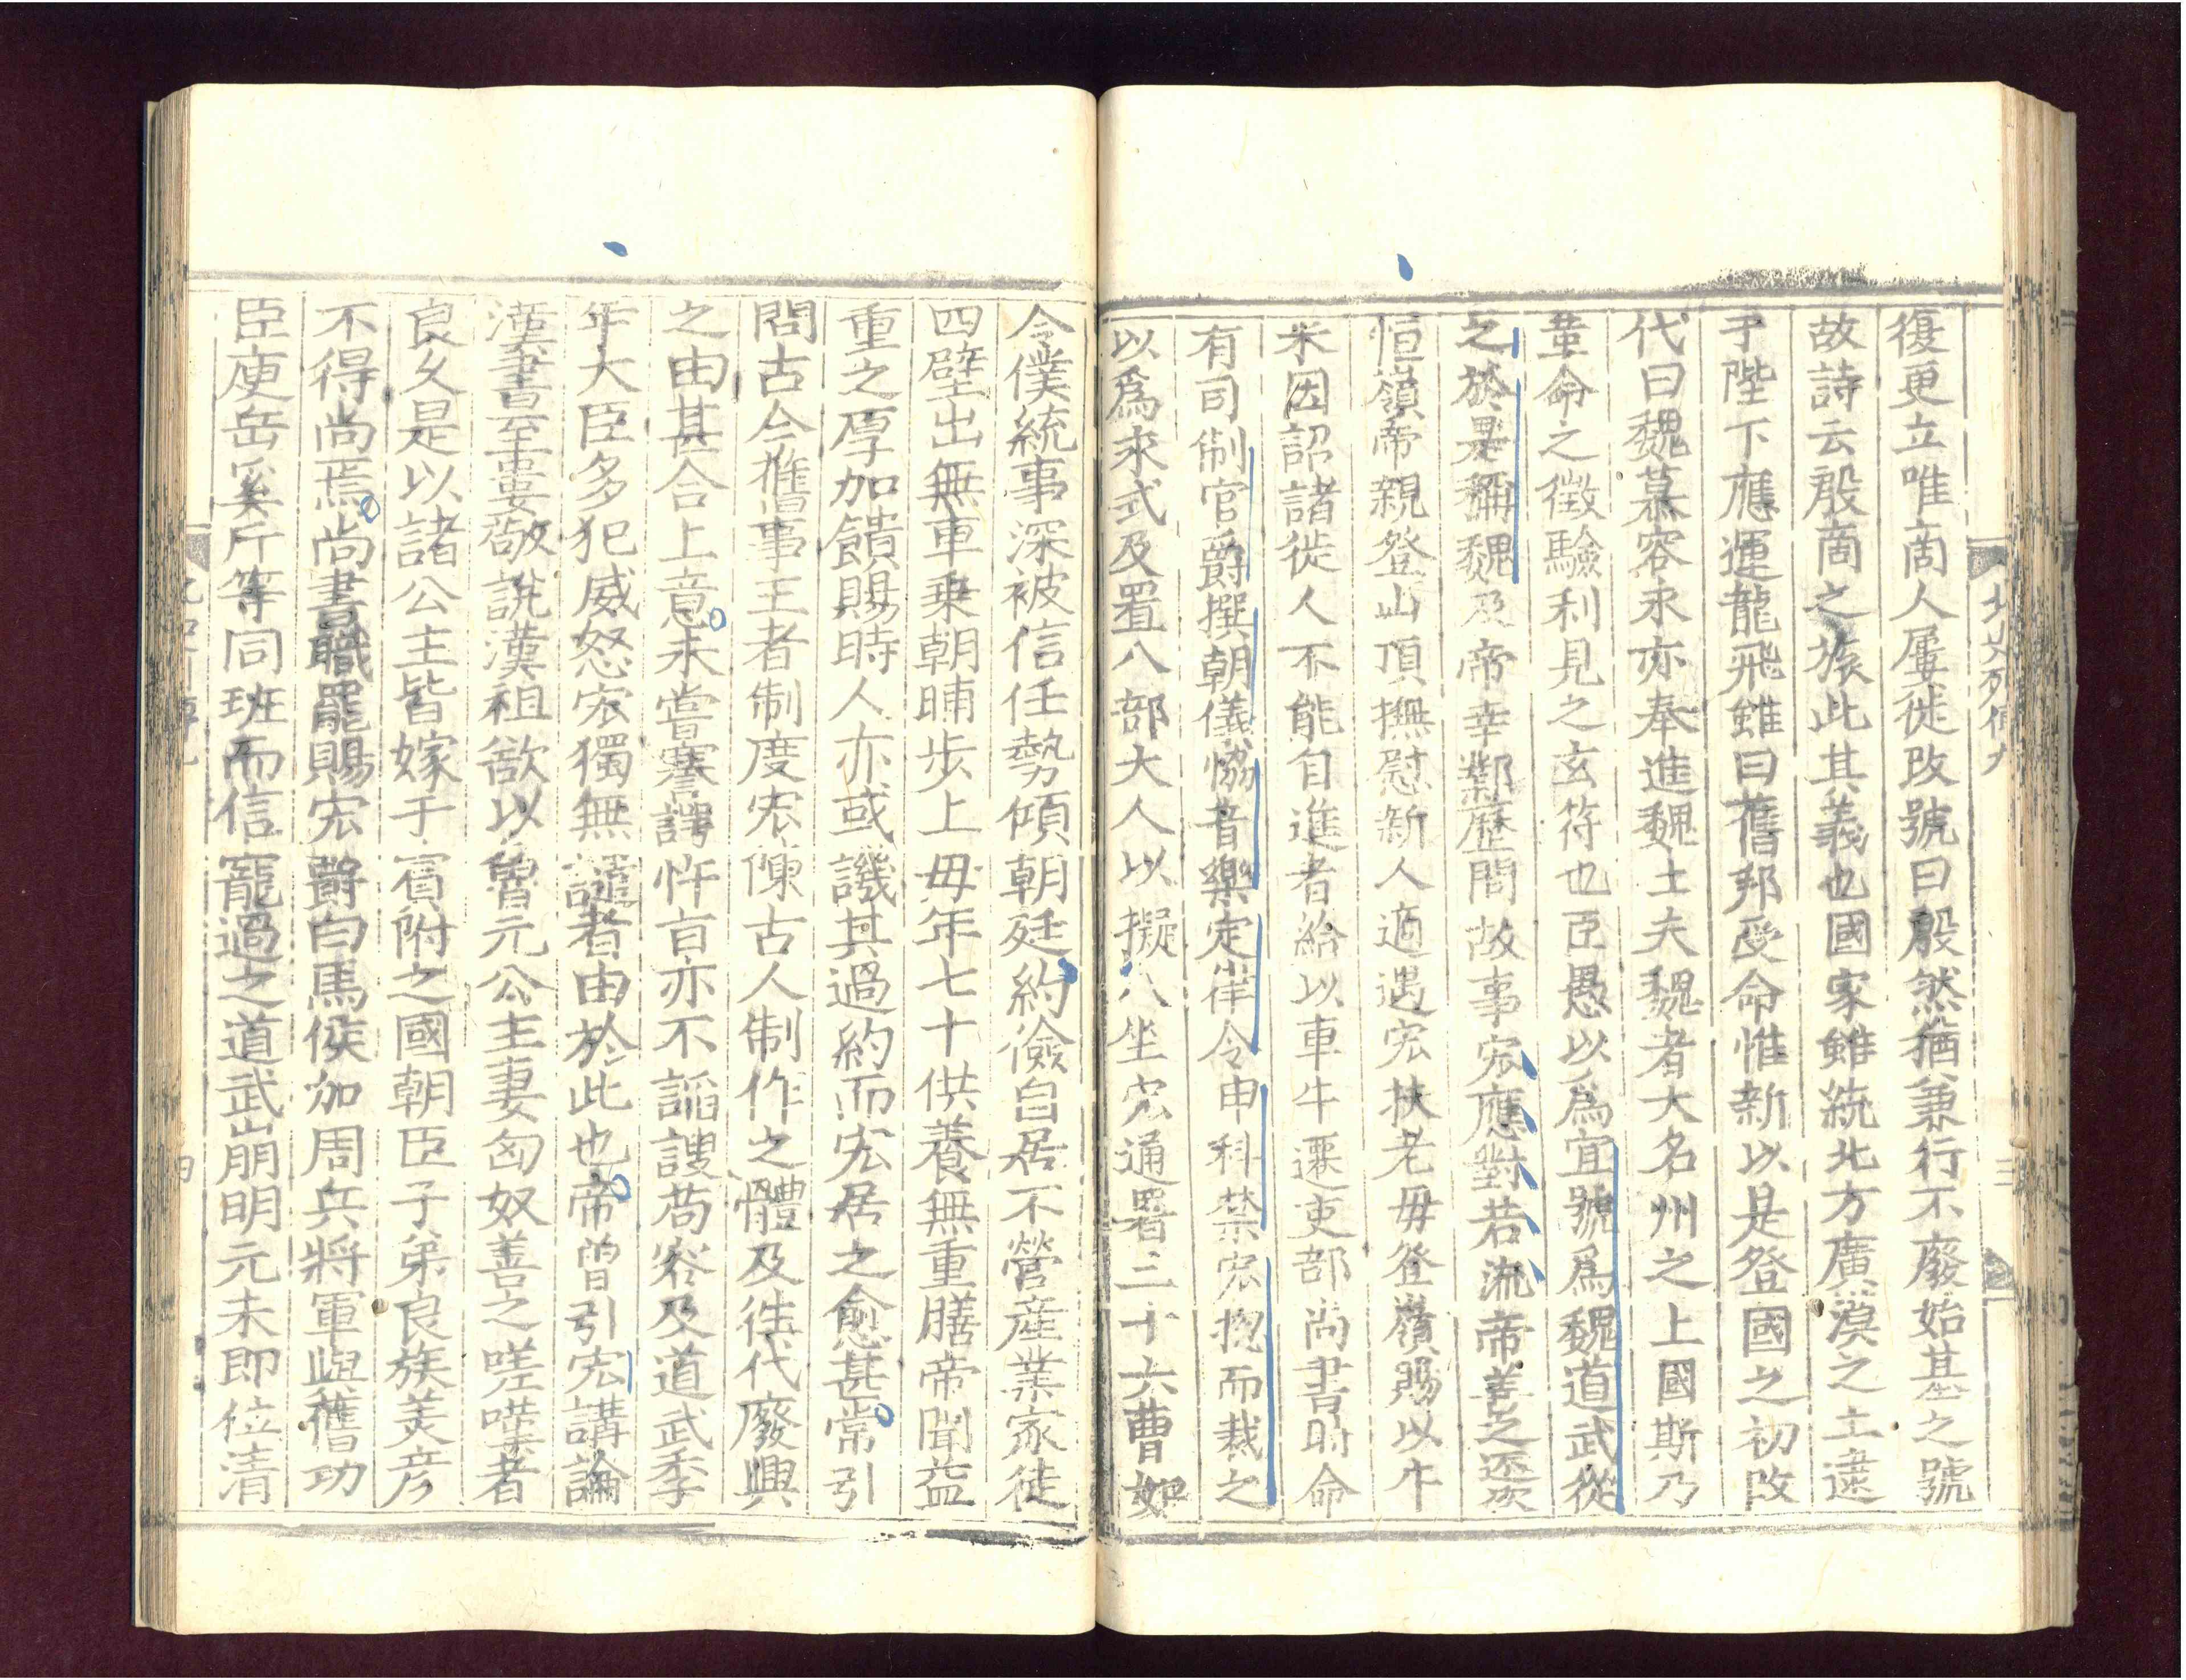 復更立唯啇人屢徙改號曰殷然猶兼行不廢始基之號
故詩云殷啇之旅此其義也國家雖統北方廣漠之土逮
于陛下應運龍飛雖曰舊邦受命惟新以是登國之初改
代曰魏慕容永亦奉進魏土夫魏者大名州之上國斯乃
革命之徵驗利見之玄符也臣愚以爲宜號爲魏道武從
之於是稱魏及帝幸鄴歷問故事宏應對若流帝善之還次
恒嶺帝親登山頂撫慰新人適遇宏扶老毋登嶺賜以牛
米因詔諸徙人不能自進者給以車牛遷吏部尚書時命
有司制官爵撰朝儀恊音樂定律令申科禁宏揔而裁之
以爲永式及置八部大人以擬八坐宏通署三十六曹如
令僕統事深被信任勢傾朝廷約儉自居不營産業家徒
四壁出無車乗朝晡步上毋年七十供養無重膳帝聞益
重之厚加饋賜時人亦或譏其過約而宏居之愈甚常引
問古今舊事王者制度宏陳古人制作之體及徃代廢興
之由甚合上意未嘗謇諤忤㫖亦不謟諛苟容及道武季
年大臣多犯威怒宏獨無譴者由於此也帝曽引宏講論
漢書至婁敬說漢祖欲以魯元公主妻匈奴善之嗟嘆者
良久是以諸公主皆嫁于賔附之國朝臣子弟良族美彦
不得尚焉尚書職罷賜宏爵白馬侯加周兵將軍與舊功
臣庾岳奚斤等同班而信寵過之道武崩明元未即位清
北史列傳九
三
四